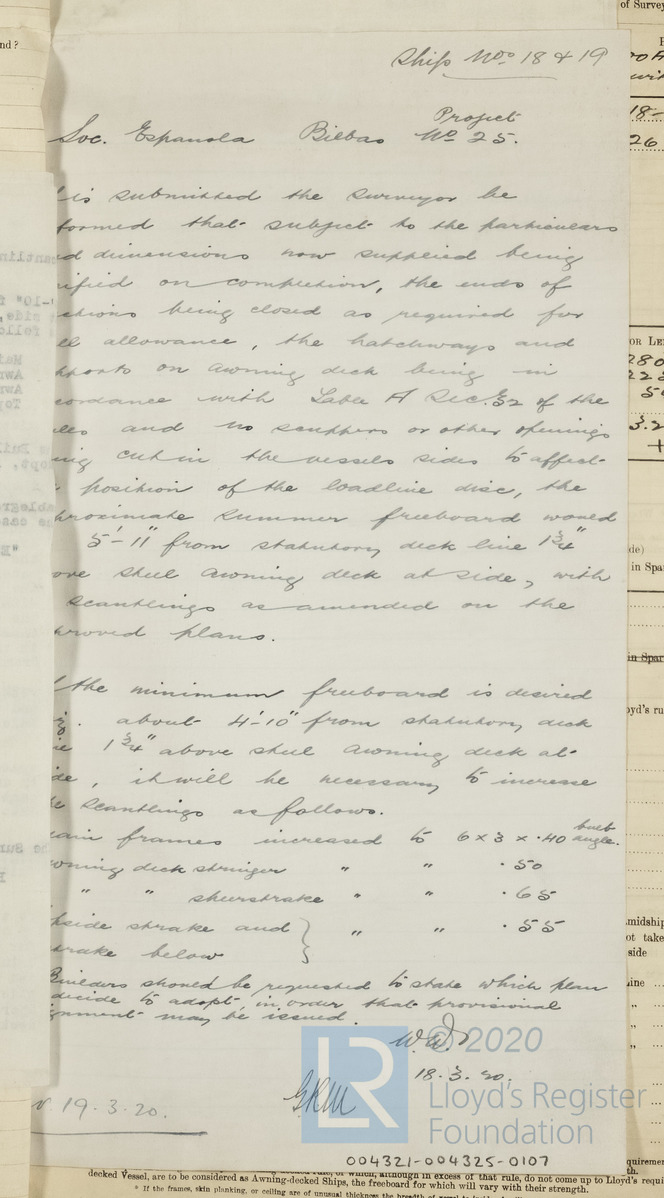 Ship Nos 18 & 19
Project
Soc. Espanola Bilbao No 25.
is submitted the surveyor be
formed that subject to the particulars
d dimensions now supplied being
ified on completion, the ends of
ctions being closed as required for
ll allowance, the hatchways and
pports on awning deck being in
cordance with Table A Sec. 32 of the
les and no scuppers or other openings
ing cut in the vessels sides to affect
position of the loadline disc, the
proximate summer freeboard would
5'-11" from statutory deck line 1¾"
ove steel awning deck at side, with
scantlings as amended on the
proved plans.
f the minimum freeboard is desired
iz. about 4'-10" from statutory deck
ne 1¾" above steel awning deck at
ide, it will be necessary to increase
he scantlings as follows.
ain frames increased to 6 x 3 x .40 bulb angle.
wning deck stringer " " .50
" " sheerstrake " " .65
pside strake and } " " .55
trake below
Builders should be requested to state which plan
decide to adopt in order that provisional
gnment may be issued.
W.W.
18.3.20.
GRM
19.3.20.
© 2020
LR
Lloyd's Register
Foundation
004321-004325-0107
decked Vessel, are to be considered as Awning-decked Ships, the freeboard for which will vary with their strength.
* If the frames, skin planking, or ceiling are of unusual thickness the breadth of
of Survey
nd?
OR LE
280
de)
in Spar
in Spar
oyd's ru
midship
ot take
side
ine
do not come up to Lloyd's requi